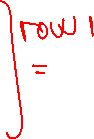 row 1
=